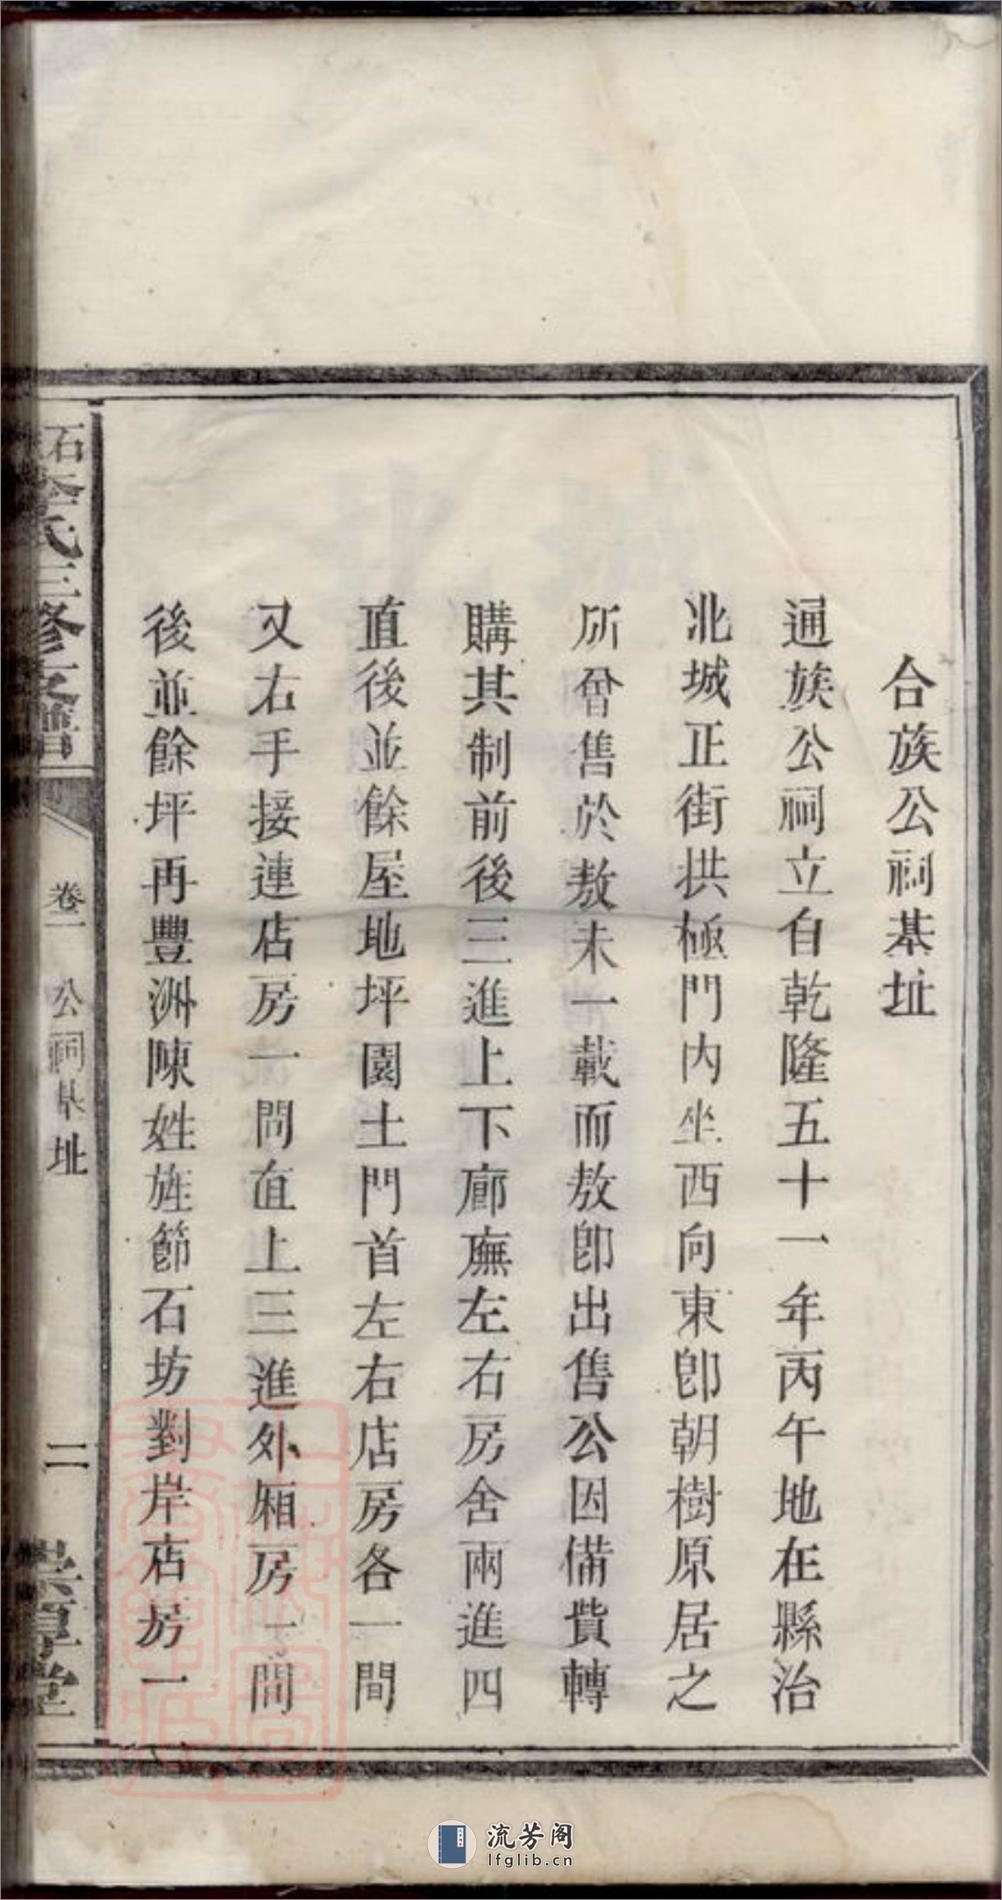 合族公祠基址
通族公祠立自乾隆五十一年丙午地在縣治
北城正街拱極門内坐西向東卽朝樹原居之
所曾售於敖未一載而敖卽出售公因備費轉
購其制前後三進上下廊廡左右房舍兩進四
直後並餘屋地坪園土門首左右店房各一間
又右手接連店房一間直上三進外廂房一間
後並餘坪再豐洲陳姓旌節石坊對岸店房一
氏三修支譜
卷一 公祠基址
二
崇享堂
流芳阁
lfglib.cn